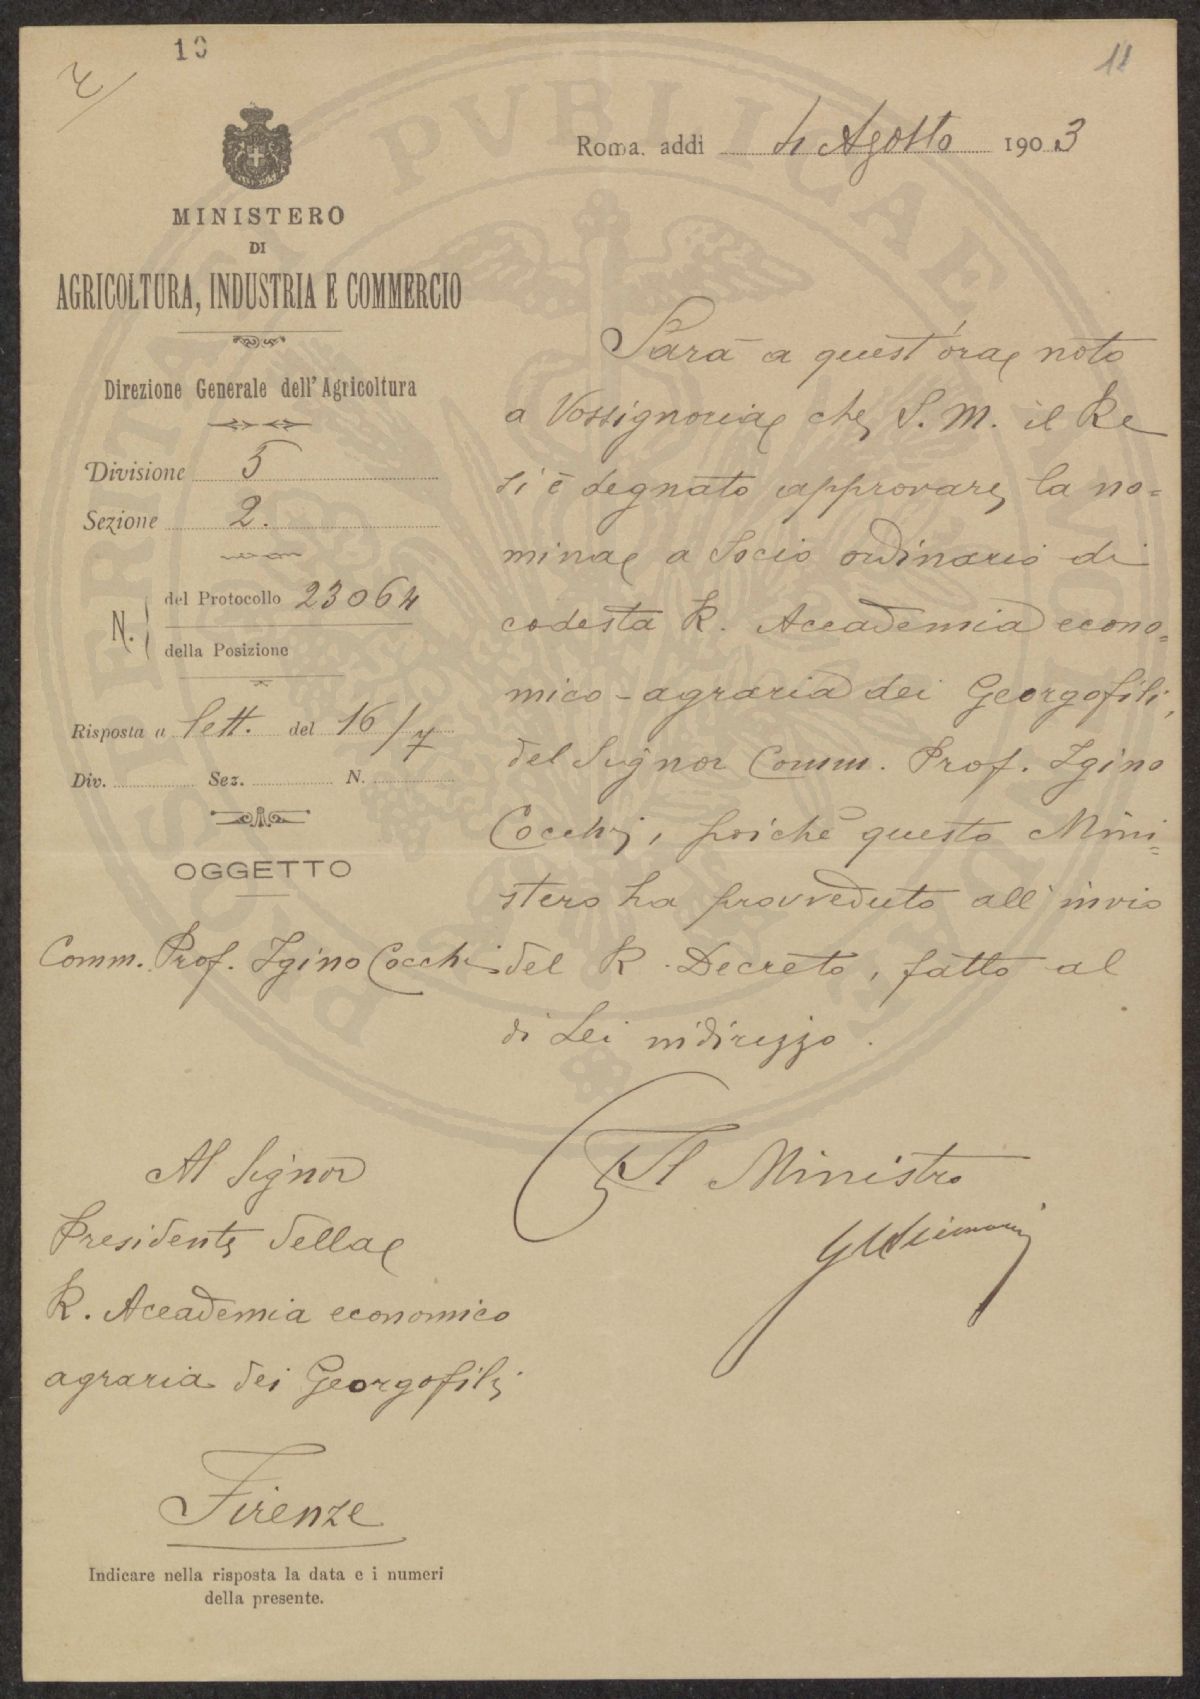 10
11
Roma, addì 4 Agosto 1903
MINISTERO
DI
AGRICOLTURA, INDUSTRIA E COMMERCIO
Direzione Generale dell'Agricoltura
Divisione 5
Sezione 2.
N. del Protocollo 23064
della Posizione
Risposta a lett. del 16/7
Div. Sez. N.
OGGETTO
Comm. Prof. Igino Cocchi
Sarà a quest'ora noto
a Vossignoria che S. M. il Re
si è degnato approvare la no=
mina a Socio ordinario di
codesta R. Accademia econo=
mico-agraria dei Georgofili,
del Signor Comm. Prof. Igino
Cocchi, poichè questo Mini=
stero ha provveduto all'invio
del R. Decreto, fatto al
di Lei indirizzo.
Il Ministro
Al Signor
Presidente della
R. Accademia economico
agraria dei Georgofili
Firenze
Indicare nella risposta la data e i numeri
della presente.